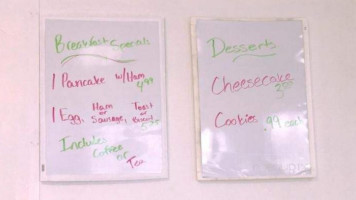 Breakfast Specials
1 Pancake w/Ham
4.99
1 Egg, Ham or Sausage, Toast or Biscuit
Includes Coffee or Tea
Desserts
Cheesecake
Cookies .99 each